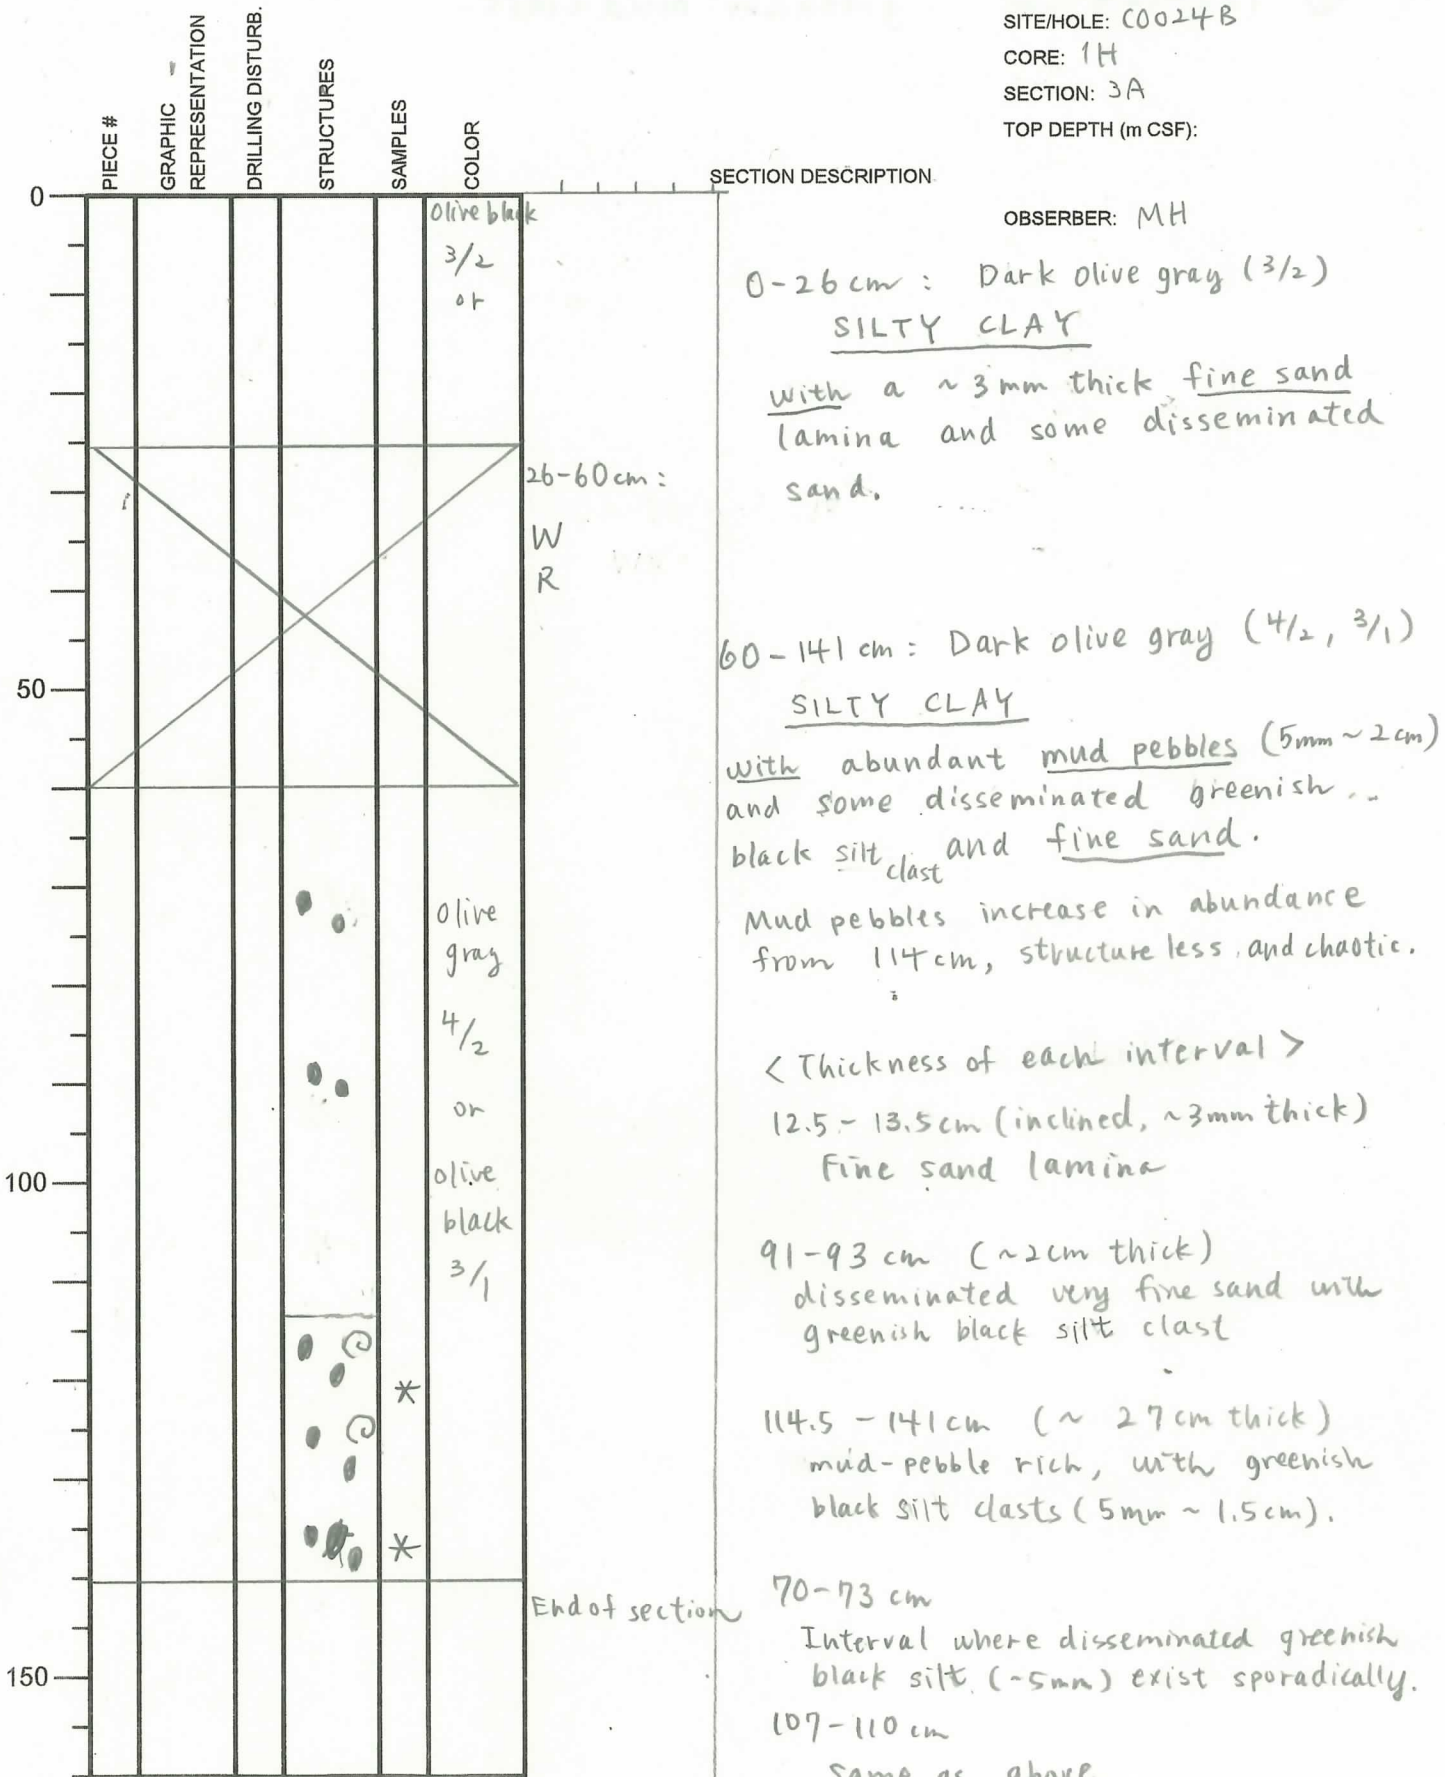 SITE/HOLE: C0024B
CORE: 1H
SECTION: 3A
TOP DEPTH (m CSF):
OBSERBER: MH
PIECE #
GRAPHIC
REPRESENTATION
DRILLING DISTURB.
STRUCTURES
SAMPLES
COLOR
SECTION DESCRIPTION
0
50
100
150
Olive black
3/2
or
26-60cm:
W
R
Olive
gray
4/2
or
olive
black
3/1
*
*
End of section
0-26 cm : Dark olive gray (3/2)
SILTY CLAY
with a ~3mm thick fine sand
lamina and some disseminated
sand.
60-141 cm : Dark olive gray (4/2, 3/1)
SILTY CLAY
with abundant mud pebbles (5mm~2cm)
and some disseminated greenish
black silt clast and fine sand.
Mud pebbles increase in abundance
from 114cm, structureless, and chaotic.
<Thickness of each interval>
12.5-13.5cm (inclined, ~3mm thick)
Fine sand lamina
91-93 cm (~2cm thick)
disseminated very fine sand with
greenish black silt clast
114.5-141cm (~ 27cm thick)
mud-pebble rich, with greenish
black silt clasts (5mm ~ 1.5cm).
70-73 cm
Interval where disseminated greenish
black silt (~5mm) exist sporadically.
107-110 cm
same as above